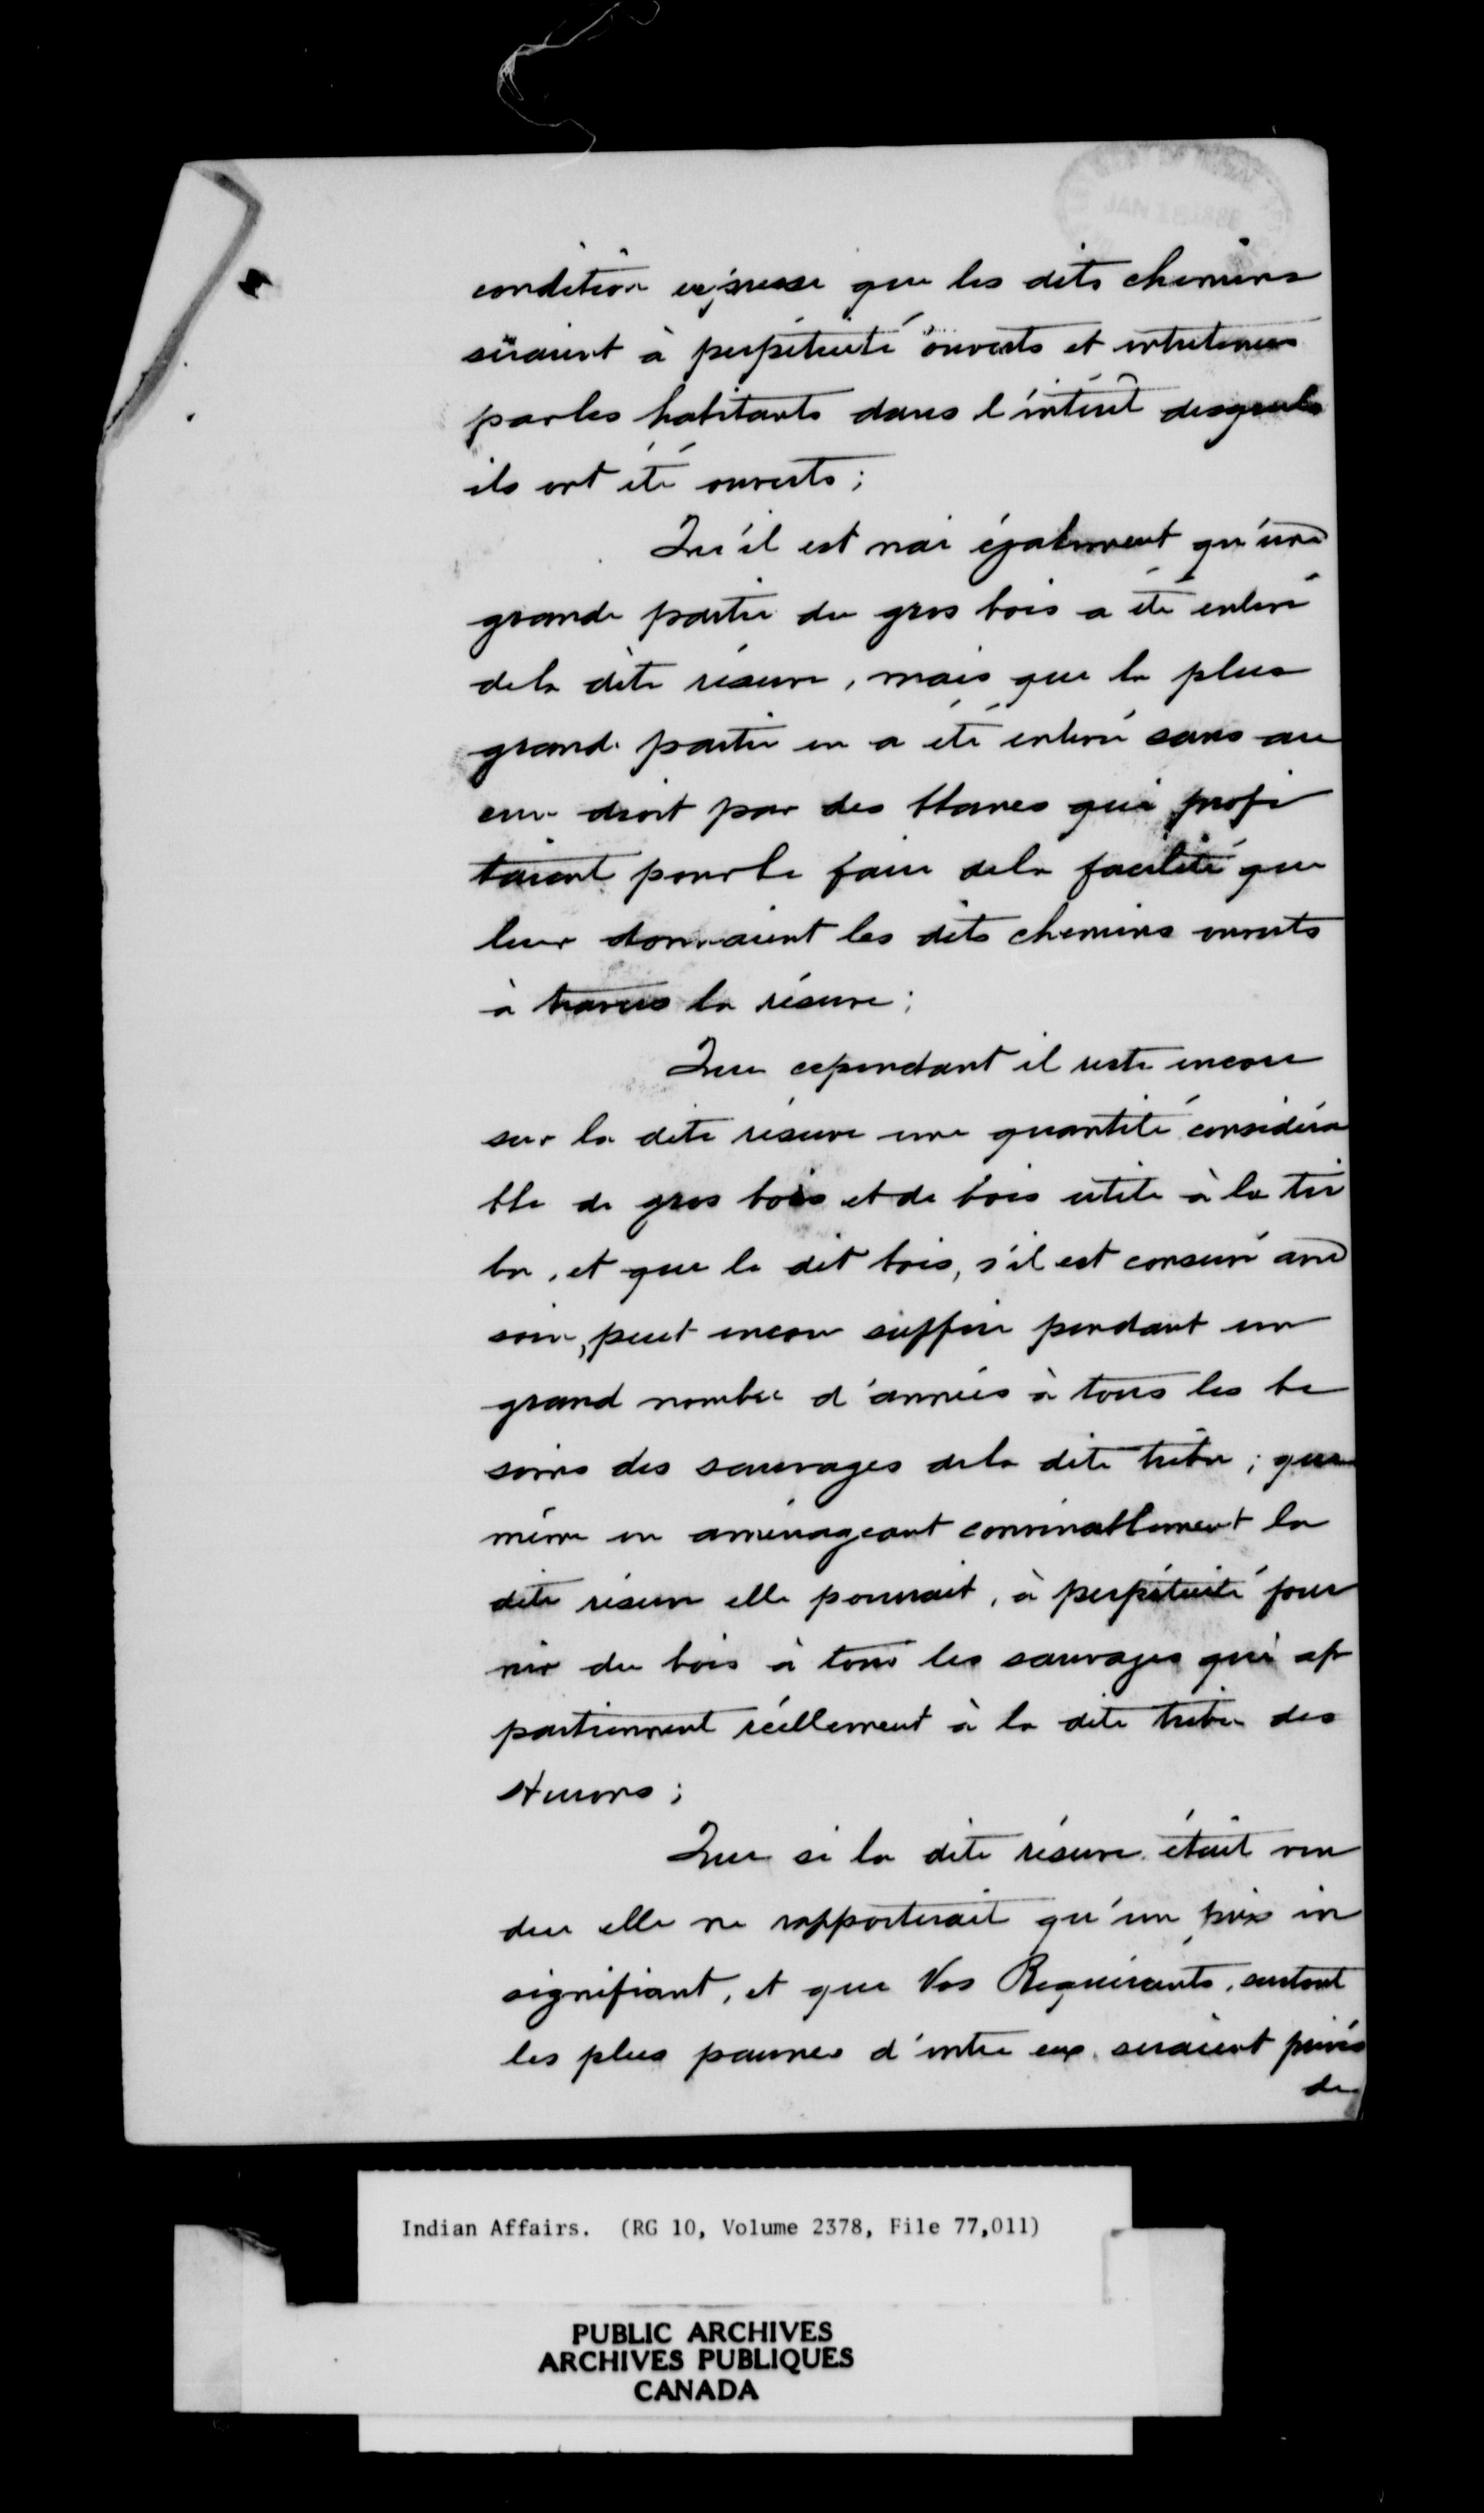 condition expresse que les dits chemins
seraient à perpétuité ouverts et entretenus
par les habitants dans l'intérêt desquels
ils ont été ouverts ;
Qu'il est vrai également qu'une
grande partie du gros bois a été enlevé
de la dite réserve, mais que la plus
grande partie en a été enlevé sans au
cun droit par des blancs qui profi
taient pour le faire de la facilité que
leur donnaient les dits chemins ouverts
à travers la réserve ;
Que cependant il reste encore
sur la dite réserve une quantité considéra
ble de gros bois et de bois utile à la tri
bu, et que le dit bois, s'il est conservé avec
soin, peut encore suffire pendant un
grand nombre d'années à tous les be
soins des sauvages de la dite tribu ; que
même en aménageant convenablement la
dite réserve elle pourrait, à perpétuité four
nir du bois à tous les sauvages qui ap
partiennent réellement à la dite tribu des
Hurons ;
Que si la dite réserve était ven
due elle ne rapporterait qu'un prix in
signifiant, et que Vos Requérants, surtout
les plus pauvres d'entre eux seraient privés
de
Indian Affairs. (RG 10, Volume 2378, File 77,011)
PUBLIC ARCHIVES
ARCHIVES PUBLIQUES
CANADA